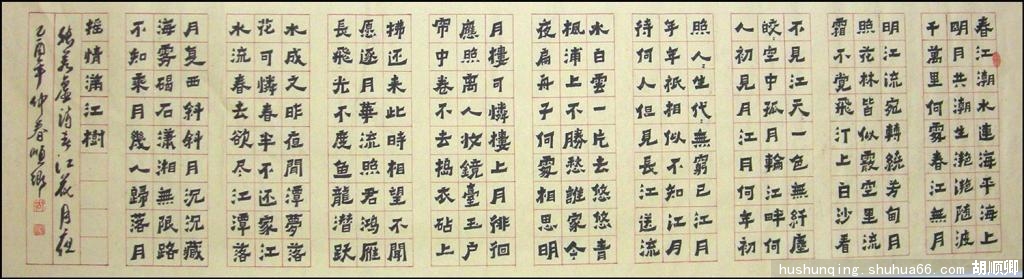 春江潮水連海平海上
明月共潮生灩灩隨波
千萬里何處春江無月
明江流宛轉繞芳甸月
照花林皆似霰空里流
霜不覺飛汀上白沙看
不見江天一色無纖塵
皎々空中孤月輪江畔何
人初見月江月何年初
照人々生代無窮已江月
年年衹相似不知江月
待何人但見長江送流
水白雲一片去悠悠青
楓浦上不勝愁誰家今
夜扁舟子何處相思明
月樓可憐樓上月徘徊
應照離人妝鏡臺玉户
帘中卷不去搗衣砧上
拂还來此時相望不聞
愿逐月華流照君鸿雁
長飛光不度鱼龍潜跃
水成文昨夜閒潭夢落
花可憐春半不还家江
水流春去欲尽江潭落
月复西斜斜月沉沉藏
海霧碣石瀟湘無限路
不知乘月幾人歸落月
摇情滿江樹
張若虛詩春江花月夜
乙酉年仲春順卿
hushunqing.shuhua66.com 胡顺卿